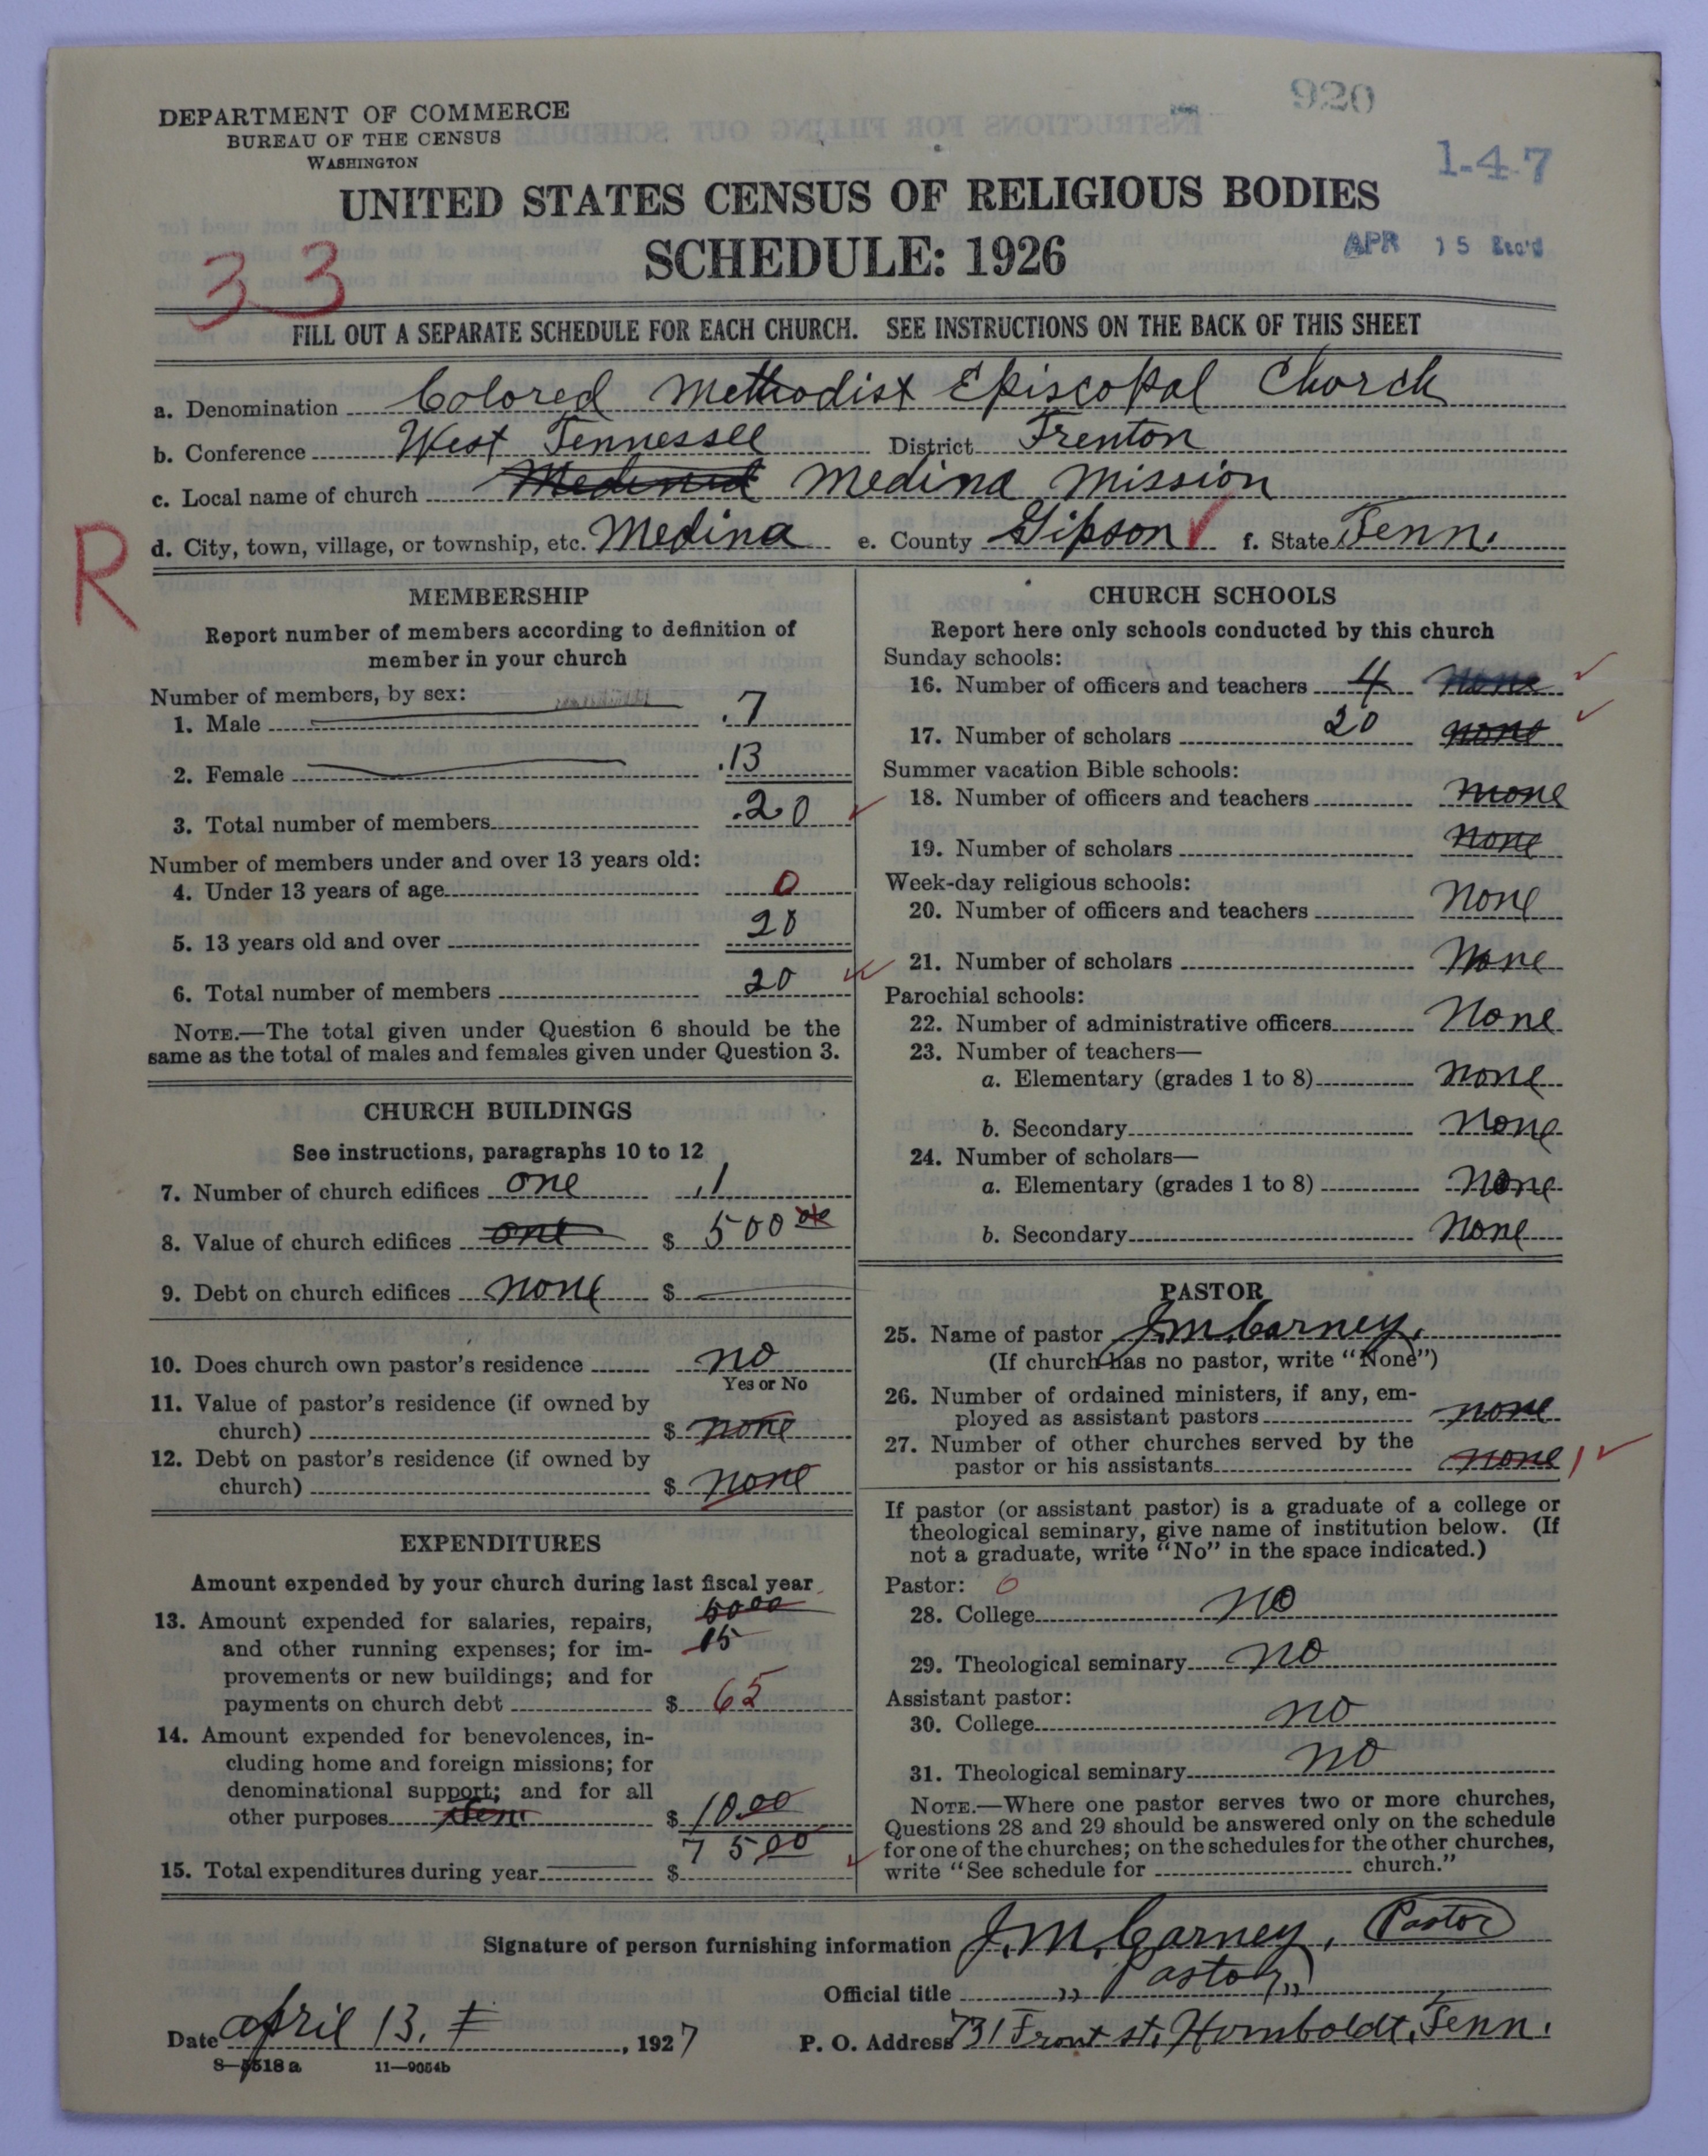 920
DEPARTMENT OF COMMERCE
BUREAU OF THE CENSUS
WASHINGTON
1-4-7
UNITED STATES CENSUS OF RELIGIOUS BODIES
SCHEDULE: 1926
APR 15 Rec'd
33
FILL OUT A SEPARATE SCHEDULE FOR EACH CHURCH. SEE INSTRUCTIONS ON THE BACK OF THIS SHEET
a. Denomination Colored Methodist Episcopal Church
b. Conference West Tennessee District Trenton
c. Local name of church Medina Mission
R
d. City, town, village, or township, etc. Medina e. County Gipson f. State Tenn.
MEMBERSHIP
Report number of members according to definition of
member in your church
Number of members, by sex:
1. Male 7
2. Female 13
3. Total number of members 20
Number of members under and over 13 years old:
4. Under 13 years of age 0
5. 13 years old and over 20
6. Total number of members 20
NOTE.—The total given under Question 6 should be the
same as the total of males and females given under Question 3.
CHURCH BUILDINGS
See instructions, paragraphs 10 to 12
7. Number of church edifices one 1
8. Value of church edifices one $ 500 00
9. Debt on church edifices none $
10. Does church own pastor's residence no
Yes or No
11. Value of pastor's residence (if owned by
church) $ none
12. Debt on pastor's residence (if owned by
church) $ none
EXPENDITURES
Amount expended by your church during last fiscal year
5000
13. Amount expended for salaries, repairs,
and other running expenses; for im- 15
provements or new buildings; and for
payments on church debt $ 65
14. Amount expended for benevolences, in-
cluding home and foreign missions; for
denominational support; and for all
other purposes $ 10.00
15. Total expenditures during year $ 75.00
CHURCH SCHOOLS
Report here only schools conducted by this church
Sunday schools:
16. Number of officers and teachers 4 none
17. Number of scholars 20 none
Summer vacation Bible schools:
18. Number of officers and teachers none
19. Number of scholars none
Week-day religious schools:
20. Number of officers and teachers none
21. Number of scholars none
Parochial schools:
22. Number of administrative officers none
23. Number of teachers—
a. Elementary (grades 1 to 8) none
b. Secondary none
24. Number of scholars—
a. Elementary (grades 1 to 8) none
b. Secondary none
PASTOR
25. Name of pastor J.M. Carney,
(If church has no pastor, write "None")
26. Number of ordained ministers, if any, em-
ployed as assistant pastors none
27. Number of other churches served by the
pastor or his assistants none 1
If pastor (or assistant pastor) is a graduate of a college or
theological seminary, give name of institution below. (If
not a graduate, write "No" in the space indicated.)
Pastor: 0
28. College no
29. Theological seminary no
Assistant pastor:
30. College no
31. Theological seminary no
NOTE.—Where one pastor serves two or more churches,
Questions 28 and 29 should be answered only on the schedule
for one of the churches; on the schedules for the other churches,
write "See schedule for church."
Signature of person furnishing information J.M. Carney, Pastor
Official title " Pastor "
Date April 13, 1927 P. O. Address 731 Front st. Homboldt, Tenn.
8—5518 a 11—9054b